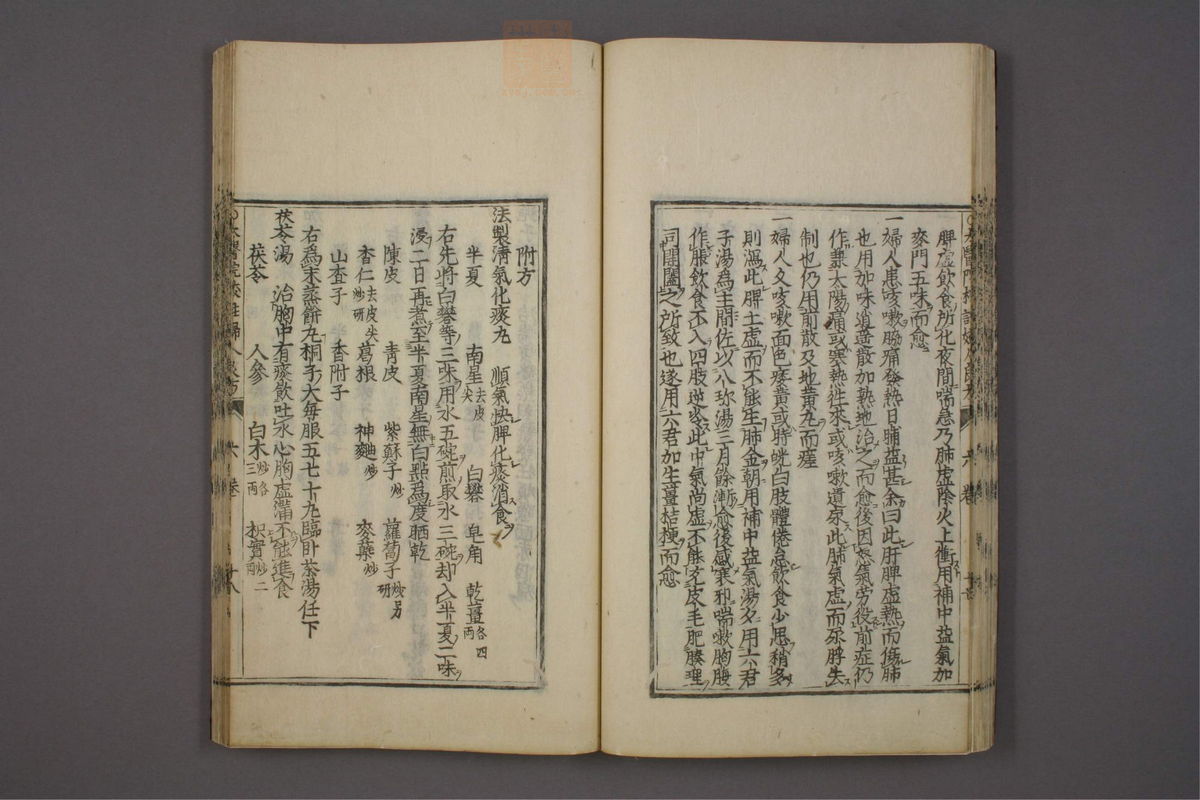 脾虛飲食所化夜間喘急乃肺虛陰火上衝用補中益氣加
麥門五味而愈
一婦人患咳嗽脇痛發熱日晡益甚余曰此肝脾虛熱而傷肺
也用加味逍遙散加熟地治之而愈後因怒氣勞役前症仍
作兼太陽痛或寒熱徃來或咳嗽遺尿此肺氣虛而尿脬失
制也仍用前散及地黃丸而瘥
一婦人久咳嗽面色痿黃或時㿠白肢體倦怠飲食少思稍多
則瀉此脾土虛而不能生肺金朝用補中益氣湯夕用六君
子湯為主間佐以八珍湯三月餘漸愈後感寒邪喘嗽胸腹
作脹飲食不入四肢逆冷此中氣尚虛不能充皮毛肥腠理
司開闔之所致也遂用六君加生薑桔梗而愈
附方
法製清氣化痰丸 順氣快脾化痰消食
半夏 南星去皮尖 白礬 皂角 乾薑各四兩
右先將白礬等三味用水五碗煎取水三碗却入半夏二味
浸二日再煮至半夏南星無白點為度晒乾
陳皮 青皮 紫蘇子炒 蘿蔔子炒另研
杏仁去皮尖炒研 葛根 神麯炒 麥蘗炒
山査子 香附子
右為末蒸餅丸桐子大每服五七十丸臨卧茶湯任下
茯苓湯 治胸中有痰飲吐水心胸虛滿不能進食
茯苓 人參 白朮炒各三兩 枳實炒二兩
六卷